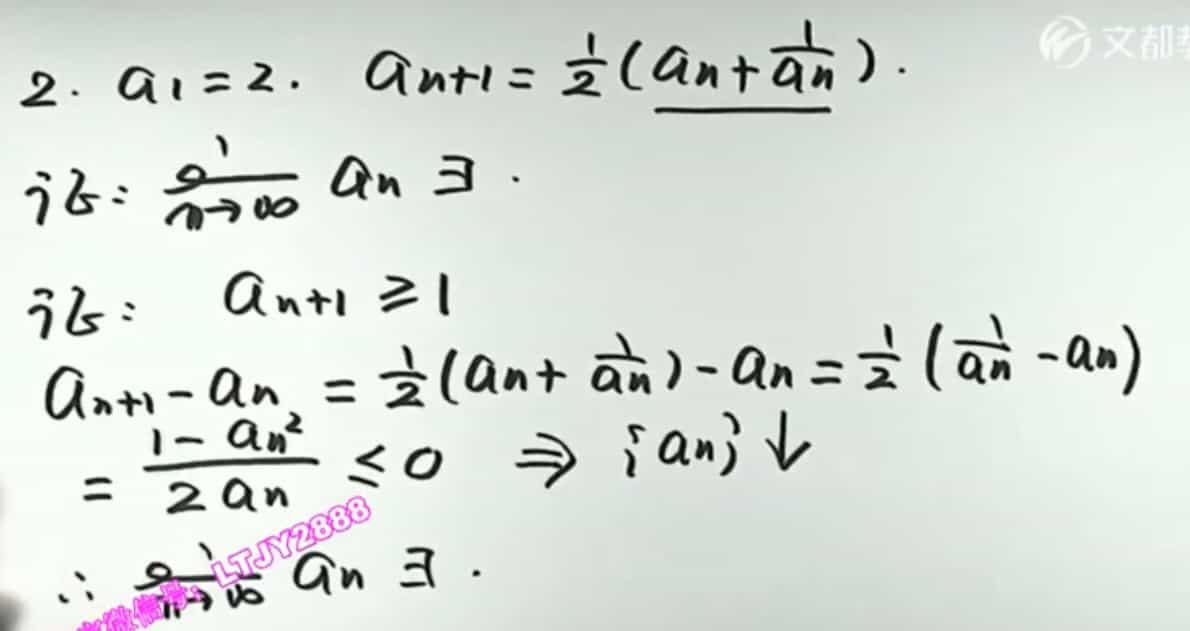 文都
2. a₁ = 2. aₙ₊₁ = ½(aₙ + 1/aₙ).
证: lim n→∞ aₙ ∃.
证: aₙ₊₁ ≥ 1
aₙ₊₁ - aₙ = ½(aₙ + 1/aₙ) - aₙ = ½(1/aₙ - aₙ)
= (1 - aₙ²)/(2aₙ) ≤ 0 ⇒ {aₙ}↓
∴ lim n→∞ aₙ ∃.
微信号: LTJY2888